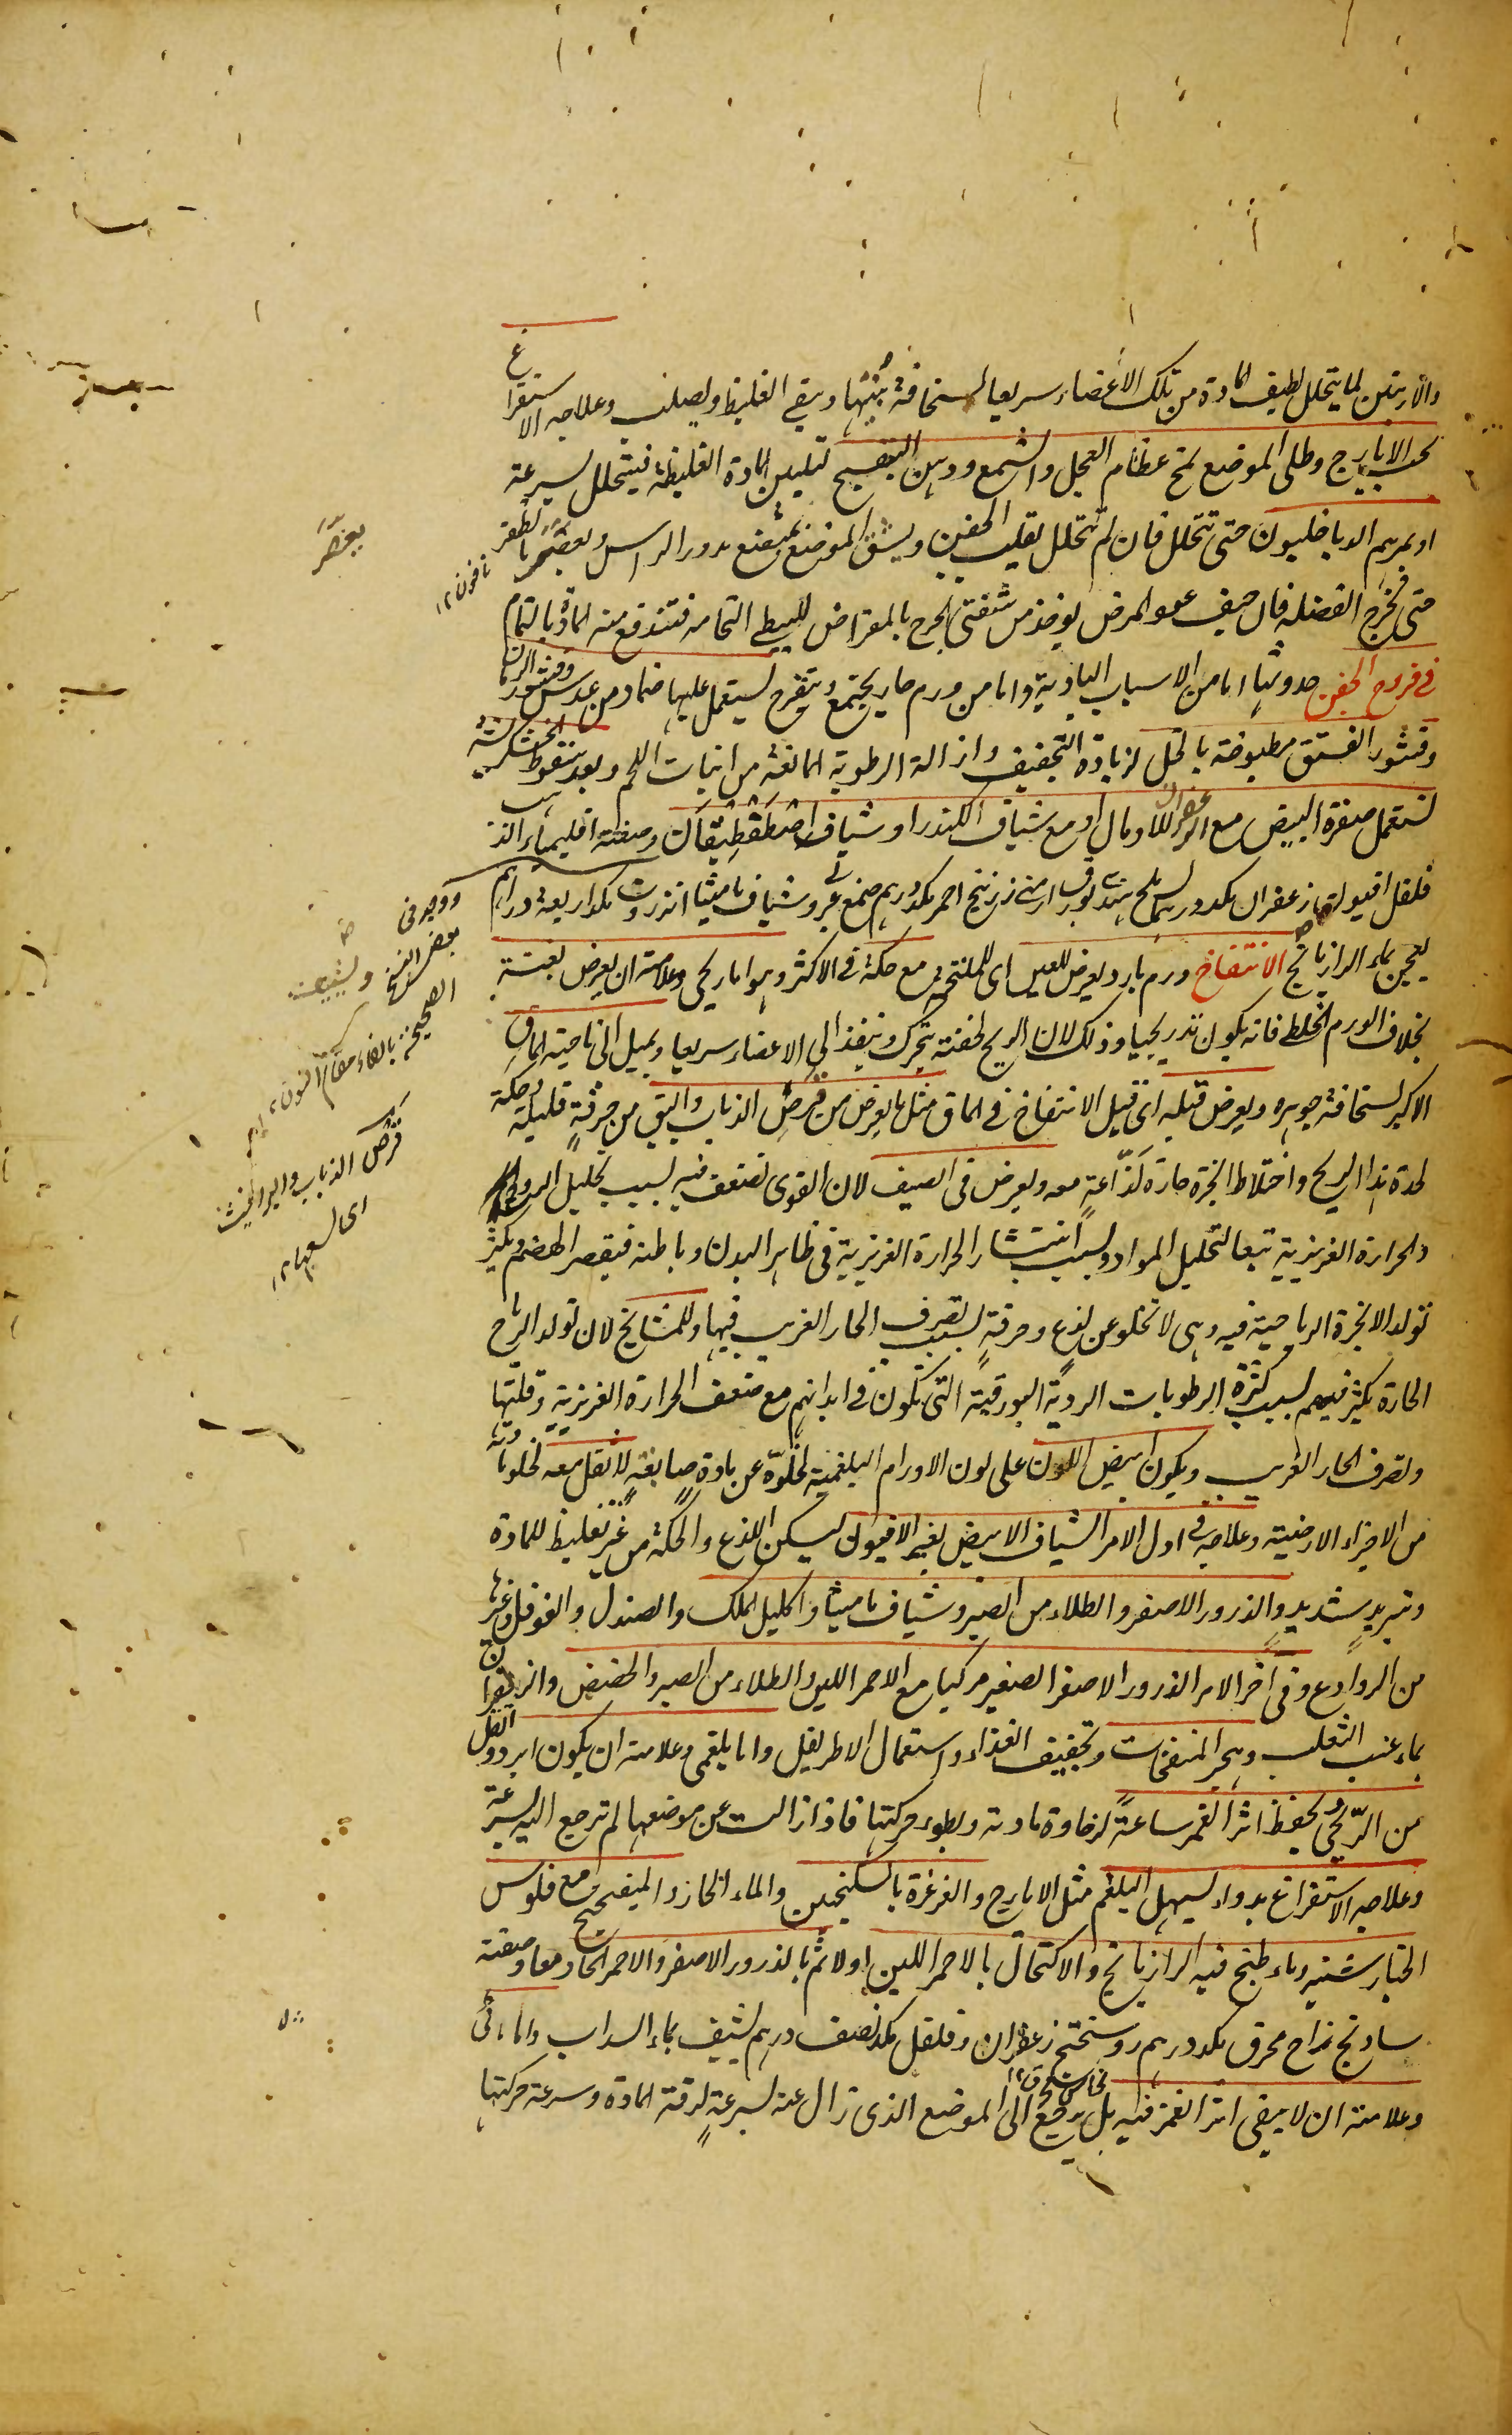 والاربتين لما يتحلل لطيف المادة من تلك الاعضاء سريعا لسخافة بنيتها ويبقى الغليظ ويصلب وعلاجه الاستفراغ
بحب الايارج وطلى الموضع بمخ عظام العجل والشمع ودهن البنفسج لتليين المادة الغليظة فيتحلل بسرعة
او بمرهم الدياخليون حتى تتحلل فان لم تتحلل يقلب الجفن ويشق الموضع بمبضع مدور الراس ويعصر بالظفر
حتى تخرج الفضلة فان خيف عود المرض يوخذ من شفتى الجرح بالمقراض ليبطى التحامه فتندفع منه المادة بالتمام
فى قروح الجفن حدوثها اما من الاسباب البادية واما من ورم حار يجتمع ويتقرح يستعمل عليها ضماد من عدس وقشور الرمان
وقشور الفستق مطبوخة بالخل لزيادة التجفيف وازالة الرطوبة المانعة من انبات اللحم وبعد سقوط الخشكريشة
تستعمل صفرة البيض مع الزعفران للادمال او مع شياف الكندر او شياف اصطفطيقان وصفته اقليمياء الذهب
فلفل افيون زعفران مكد درهم ملح هندى بورق ارمنى زرنيخ احمر مكد درهم صمغ عربى وشياف ماميثا انزروت مكد اربعة دراهم
يعجن بماء الرازيانج الانتفاخ ورم بارد يعرض للعين اى للملتحم مع حكة فى الاكثر وهو اما ريحى وعلامته ان يعرض بغتة
بخلاف الورم الخلطى فانه يكون تدريجيا وذلك لان الريح لخفته يتحرك وينفذ الى الاعضاء سريعا ويميل الى ناحية الماق
الاكبر لسخافة جوهره ويعرض قبله اى قبيل الانتفاخ فى الماق مثل ما يعرض من قرص الذباب والبق من حرقة قليلة وحكة
لحدة هذا الريح واختلاط ابخرة حارة لذاعة معه ويعرض فى الصيف لان القوى تضعف فيه بسبب تحليل الروح
والحرارة الغريزية تبعا لتحليل المواد وبسبب انتشار الحرارة الغريزية فى ظاهر البدن وباطنه فيقصر الهضم ويكثر
تولد الابخرة الرياحية فيه وهى لا تخلو عن لذع وحرقة بسبب تصرف الحار الغريب فيها وللمشايخ لان تولد الرياح
الحارة يكثر فيهم بسبب كثرة الرطوبات الردية البورقية التى تكون فى ابدانهم مع ضعف الحرارة الغريزية وقلتها
وتصرف الحار الغريب ويكون ابيض اللون على لون الاورام البلغمية لخلوه عن مادة صابغة لا ثقل معه لخلو مادته
من الاجزاء الارضية وعلاجه فى اول الامر الشياف الابيض بغير الافيون ليسكن اللذع والحكة من غير تغليظ للمادة
وتبريد شديد والذرور الاصفر والطلاء من الصبر وشياف ماميثا واكليل الملك والصندل والفوفل وغيرها
من الروادع وفى اخر الامر الذرور الاصفر الصغير مركبا مع الاحمر اللين والطلاء من الصبر والحضض والزعفران
بماء عنب الثعلب وهجر المنفخات وتخفيف الغذاء واستعمال الاطريفل واما بلغمى وعلامته ان يكون ابرد واثقل
من الريحى ويحفظ اثر الغمز ساعة لرخاوة مادته وبطوء حركتها فاذا زالت عن موضعها لم ترجع اليه بسرعة
وعلاجه الاستفراغ بدواء يسهل البلغم مثل الايارج والغرغرة بالسكنجبين والماء الحار والميفختج مع فلوس
الخيارشنبر وماء طبخ فيه الرازيانج والاكتحال بالاحمر اللين اولا ثم بالذرور الاصفر والاحمر الحاد معا وصفته
سادنج نحاس محرق مكد درهم روسختج زعفران وفلفل مكد نصف درهم يشيف بماء السداب واما مائى
نحاس محرق ١٢
وعلامته ان لا يبقى اثر الغمز فيه بل يرجع الى الموضع الذى زال عنه بسرعة لرقة المادة وسرعة حركتها
يعصر
ناخون ١٢
ووجد فى
بعض النسخ
الصحيحة بالفاء مقام النون ١٢
قرص الذباب والبراغيث
اى لسعها ١٢